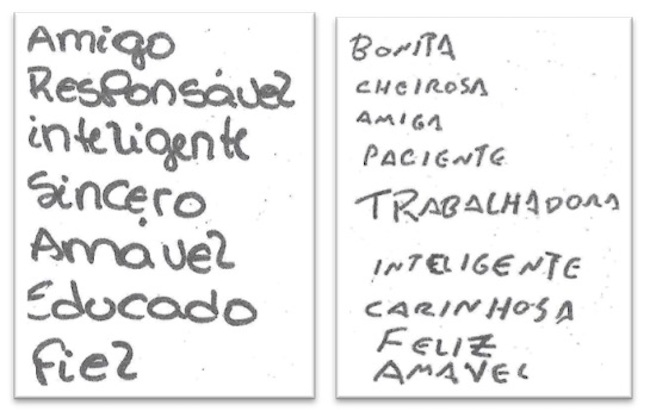 Amigo
Responsável
inteligente
Sincero
Amável
Educado
fiel
BONITA
CHEIROSA
AMIGA
PACIENTE
TRABALHADORA
INTELIGENTE
CARINHOSA
FELIZ
AMAVEL